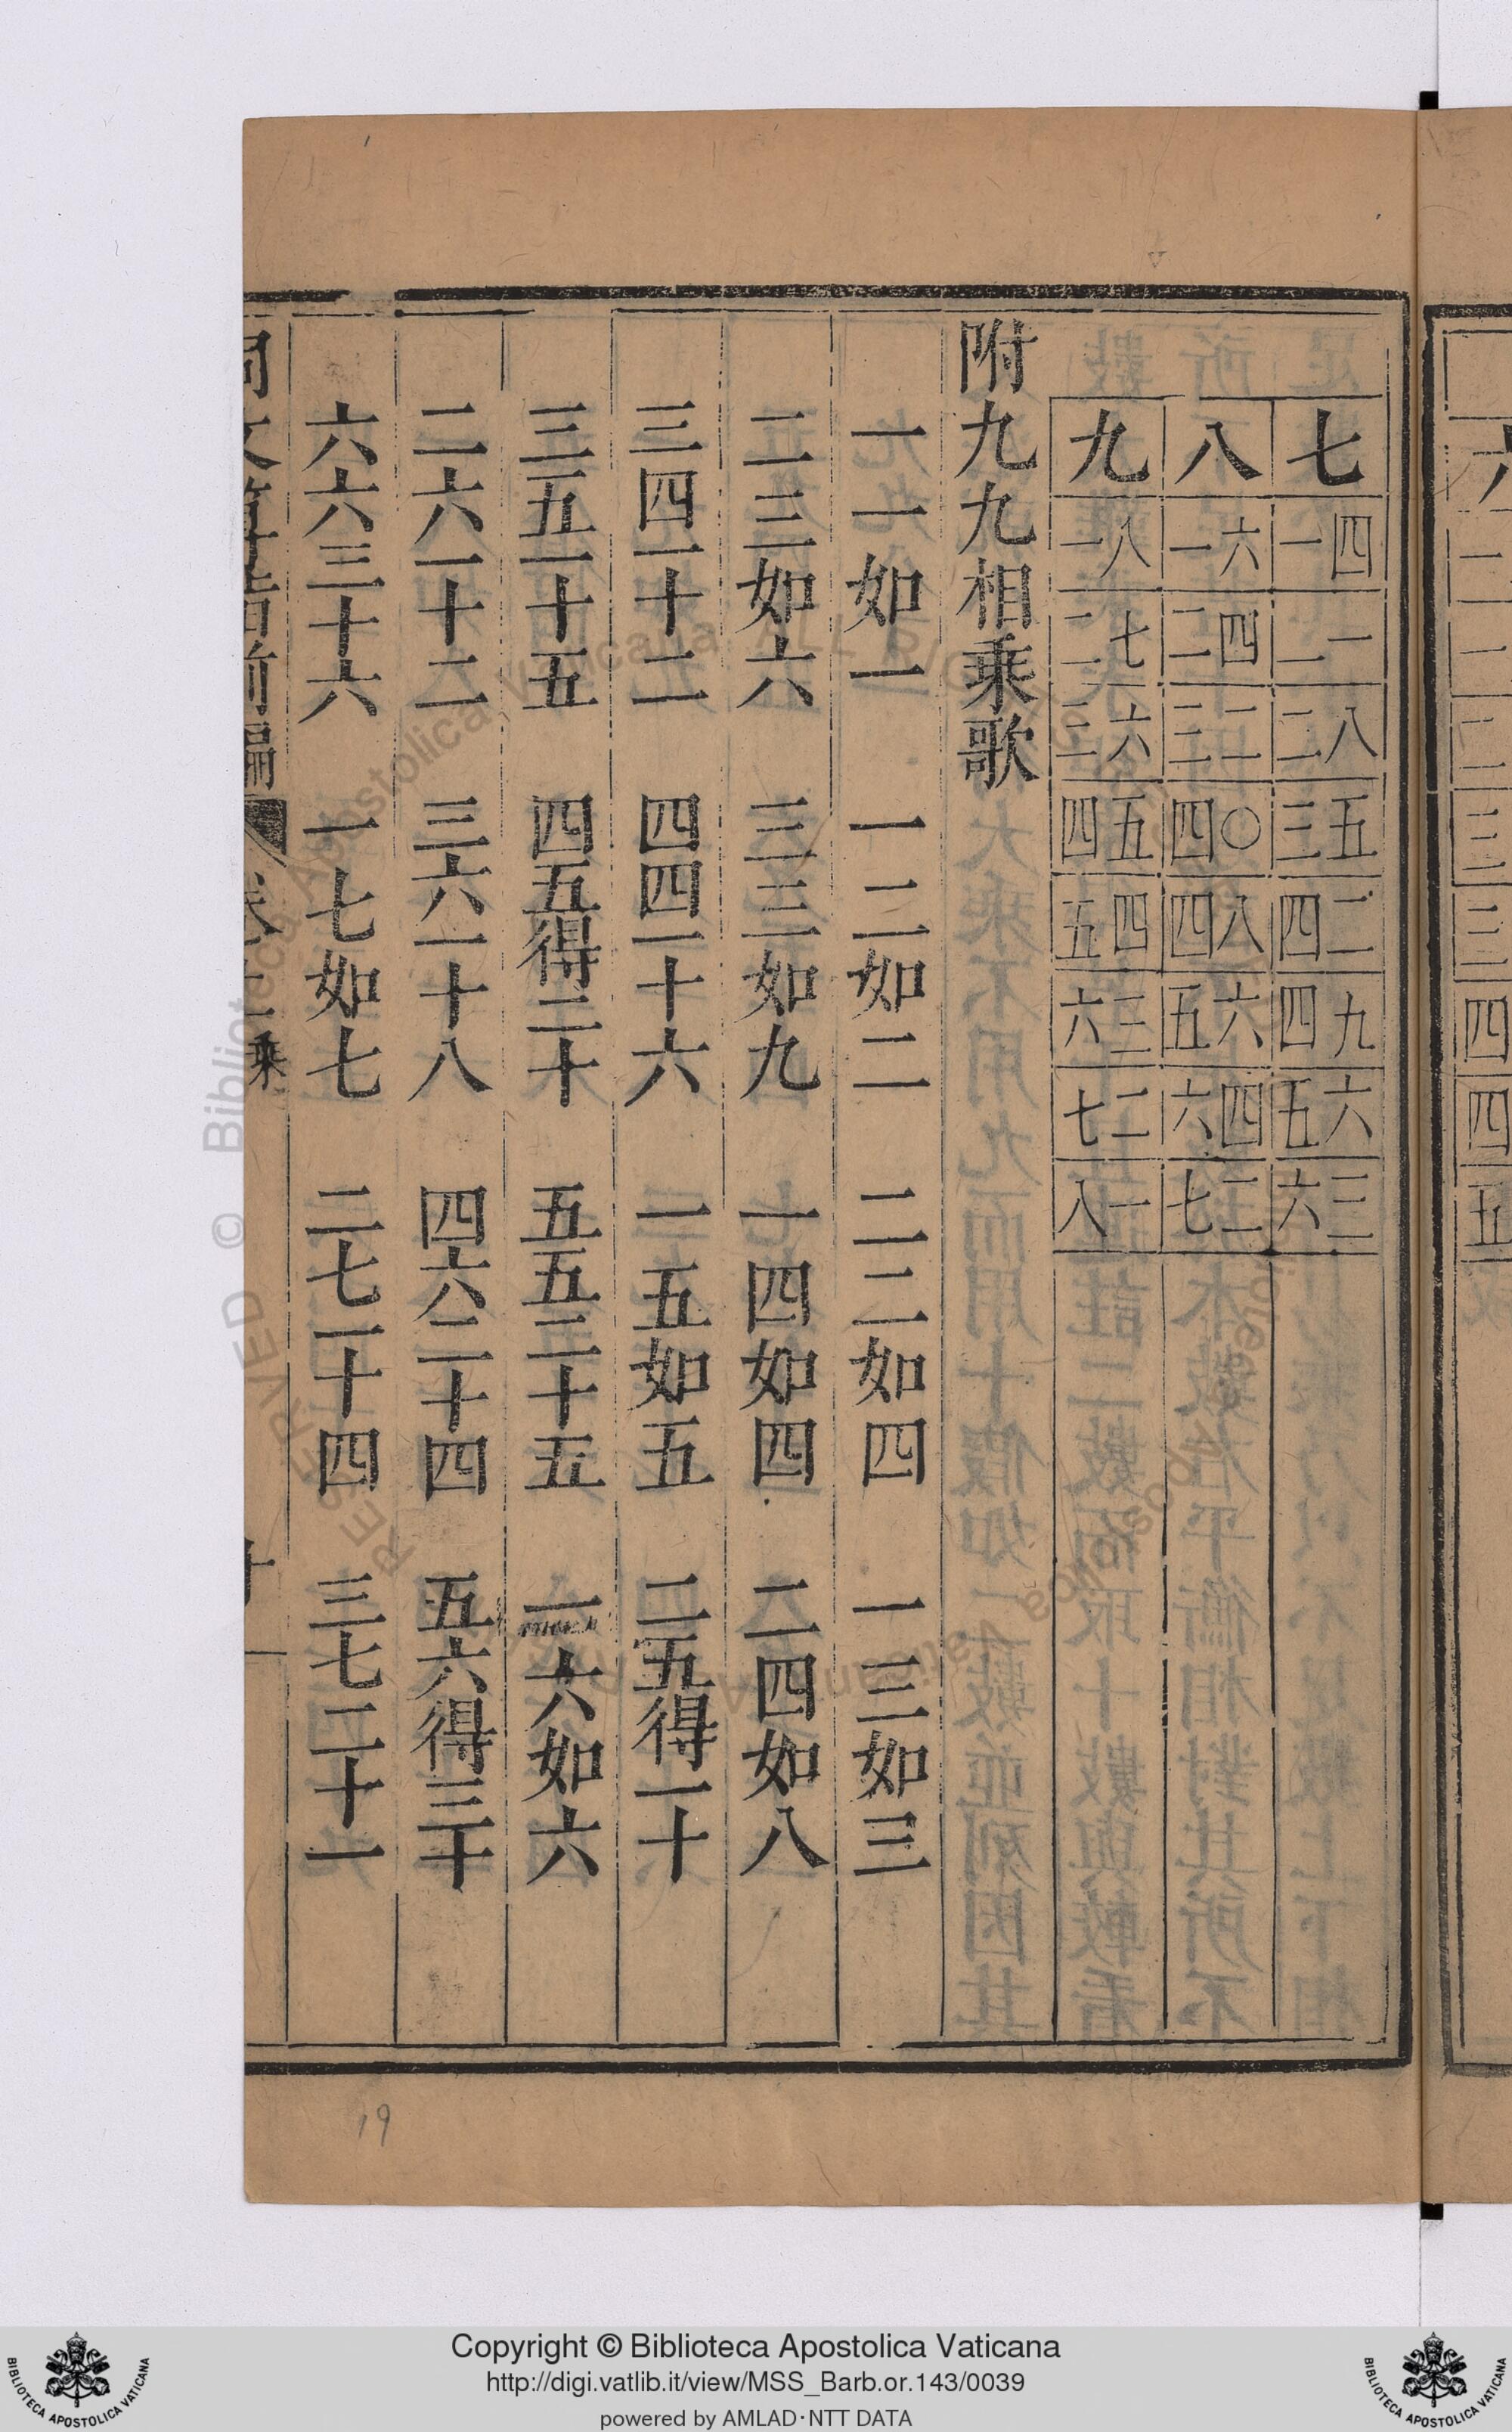 七 一四 二一 二八 三五 四二 四九 五六 六三
八 一六 二四 三二 四〇 四八 五六 六四 七二
九 一八 二七 三六 四五 五四 六三 七二 八一
附九九相乘歌
一一如一 一二如二 二二如四 一三如三
二三如六 三三如九 一四如四 二四如八
三四一十二 四四一十六 一五如五 二五得一十
三五一十五 四五得二十 五五二十五 一六如六
二六一十二 三六一十八 四六二十四 五六得三十
六六三十六 一七如七 二七一十四 三七二十一
19
© Biblioteca Apostolica Vaticana ALL RIGHTS RESERVED
Copyright © Biblioteca Apostolica Vaticana
http://digi.vatlib.it/view/MSS_Barb.or.143/0039
powered by AMLAD·NTT DATA
BIBLIOTECA APOSTOLICA VATICANA
BIBLIOTECA APOSTOLICA VATICANA